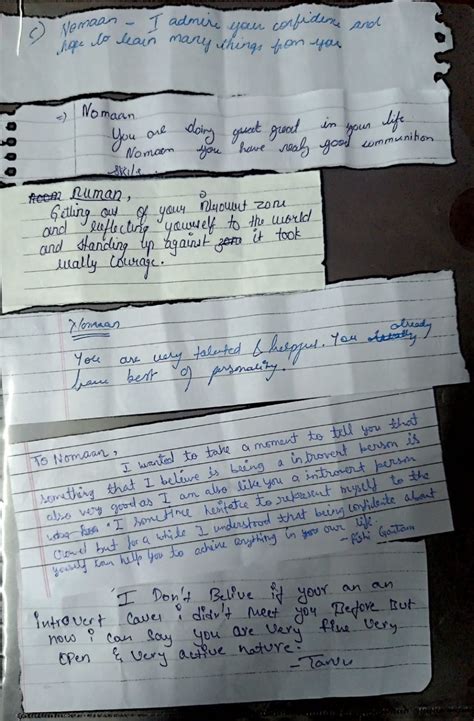 c) Nomaan - I admire your confidence and
hope to learn many things from you
=) Nomaan
You are doing great great in your life
Nomaan you have realy good communition
skils.
Numan,
Getting out of your Introvert zone
and reflecting yourself to the world
and standing up against it took
really courage.
Nomaan
You are very talented & helpful. You already
have best of personality.
To Nomaan,
I wanted to take a moment to tell you that
something that I believe is being a introvert person is
also very good as I am also like you a introvert person
I sometime hesitate to represent myself to the
crowd but for a while I understood that being confidente about
youself can help you to achive anything in you own life.
- Gautam
I Don't Belive if your an an
introvert caues i didn't meet you Before But
now i can say you are very fine very
open & very active nature.
- Tanu